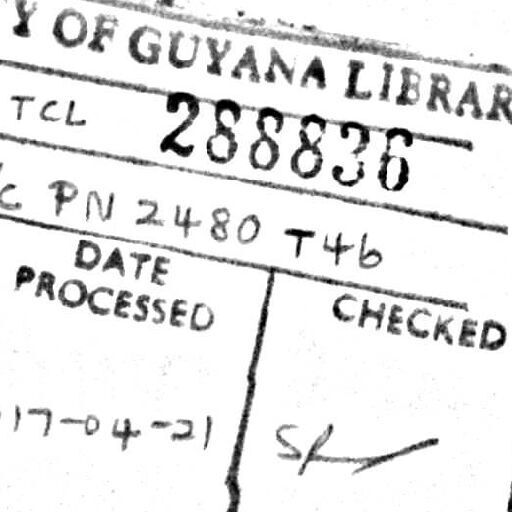 Y OF GUYANA LIBRAR
TCL 288836
C PN 2480 T46
DATE PROCESSED
CHECKED
17-04-21